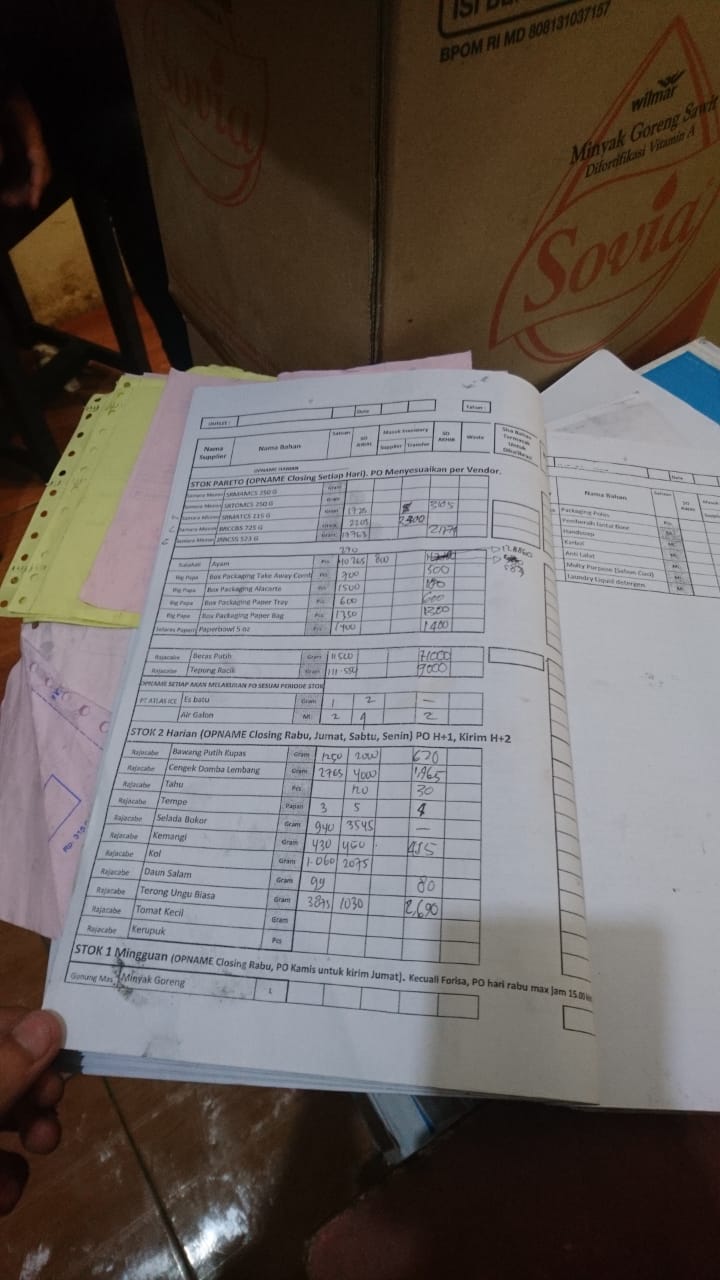 ISI
BPOM RI MD 808131037157
wilmar
Minyak Goreng Sawit
Difortifikasi Vitamin A
Sovia
Sovia
OUTLET : Date Tahun :
Nama Supplier Nama Bahan Satuan SO AWAL Masuk Inventory Supplier Transfer SO AKHIR Waste Sisa Bahan Termasuk Untuk
OPNAME HARIAN
STOK PARETO (OPNAME Closing Setiap Hari). PO Menyesuaikan per Vendor.
SRMAMCS 250 G Gram
SRTOMCS 250 G Gram
SRMATCS 115 G Gram 1725
BRCCBS 725 G Gram 2205
BRBCSS 523 G Gram
Ayam Pcs 800
Big Papa Box Packaging Take Away Comb Pcs 700 500
Big Papa Box Packaging Alacarte Pcs 1500
Big Papa Box Packaging Paper Tray Pcs 600 600
Big Papa Box Packaging Paper Bag Pcs 1350
Paperbowl 5 oz Pcs 1400 1400
Rajacabe Beras Putih Gram 11500 71000
Rajacabe Tepung Racik Gram 9000
OPNAME SETIAP AKAN MELAKUKAN PO SESUAI PERIODE STOK
PT ATLAS ICE Es batu Gram 1 2 –
Air Galon M: 2 4 2
STOK 2 Harian (OPNAME Closing Rabu, Jumat, Sabtu, Senin) PO H+1, Kirim H+2
Rajacabe Bawang Putih Kupas Gram 1250 2000 620
Rajacabe Cengek Domba Lembang Gram 2765 4000 1965
Rajacabe Tahu Pcs 120 30
Rajacabe Tempe Papan 3 5 4
Rajacabe Selada Bokor Gram 940 3545 –
Rajacabe Kemangi Gram 430 450 415
Rajacabe Kol Gram 1.060 2075
Rajacabe Daun Salam Gram 99 80
Rajacabe Terong Ungu Biasa Gram 3875 1030 2,690
Rajacabe Tomat Kecil Gram
Rajacabe Kerupuk Pcs
STOK 1 Mingguan (OPNAME Closing Rabu, PO Kamis untuk kirim Jumat). Kecuali Forisa, PO hari rabu max jam 15.00
Gunung Mas Minyak Goreng L
Date
Nama Bahan Satuan SO AWAL Masuk
Packaging Polos
Pembersih Lantai Boar
Handsoap
Karbol
Anti Lalat
Multy Purpose (Sabun Cuci)
Laundry Liquid detergen